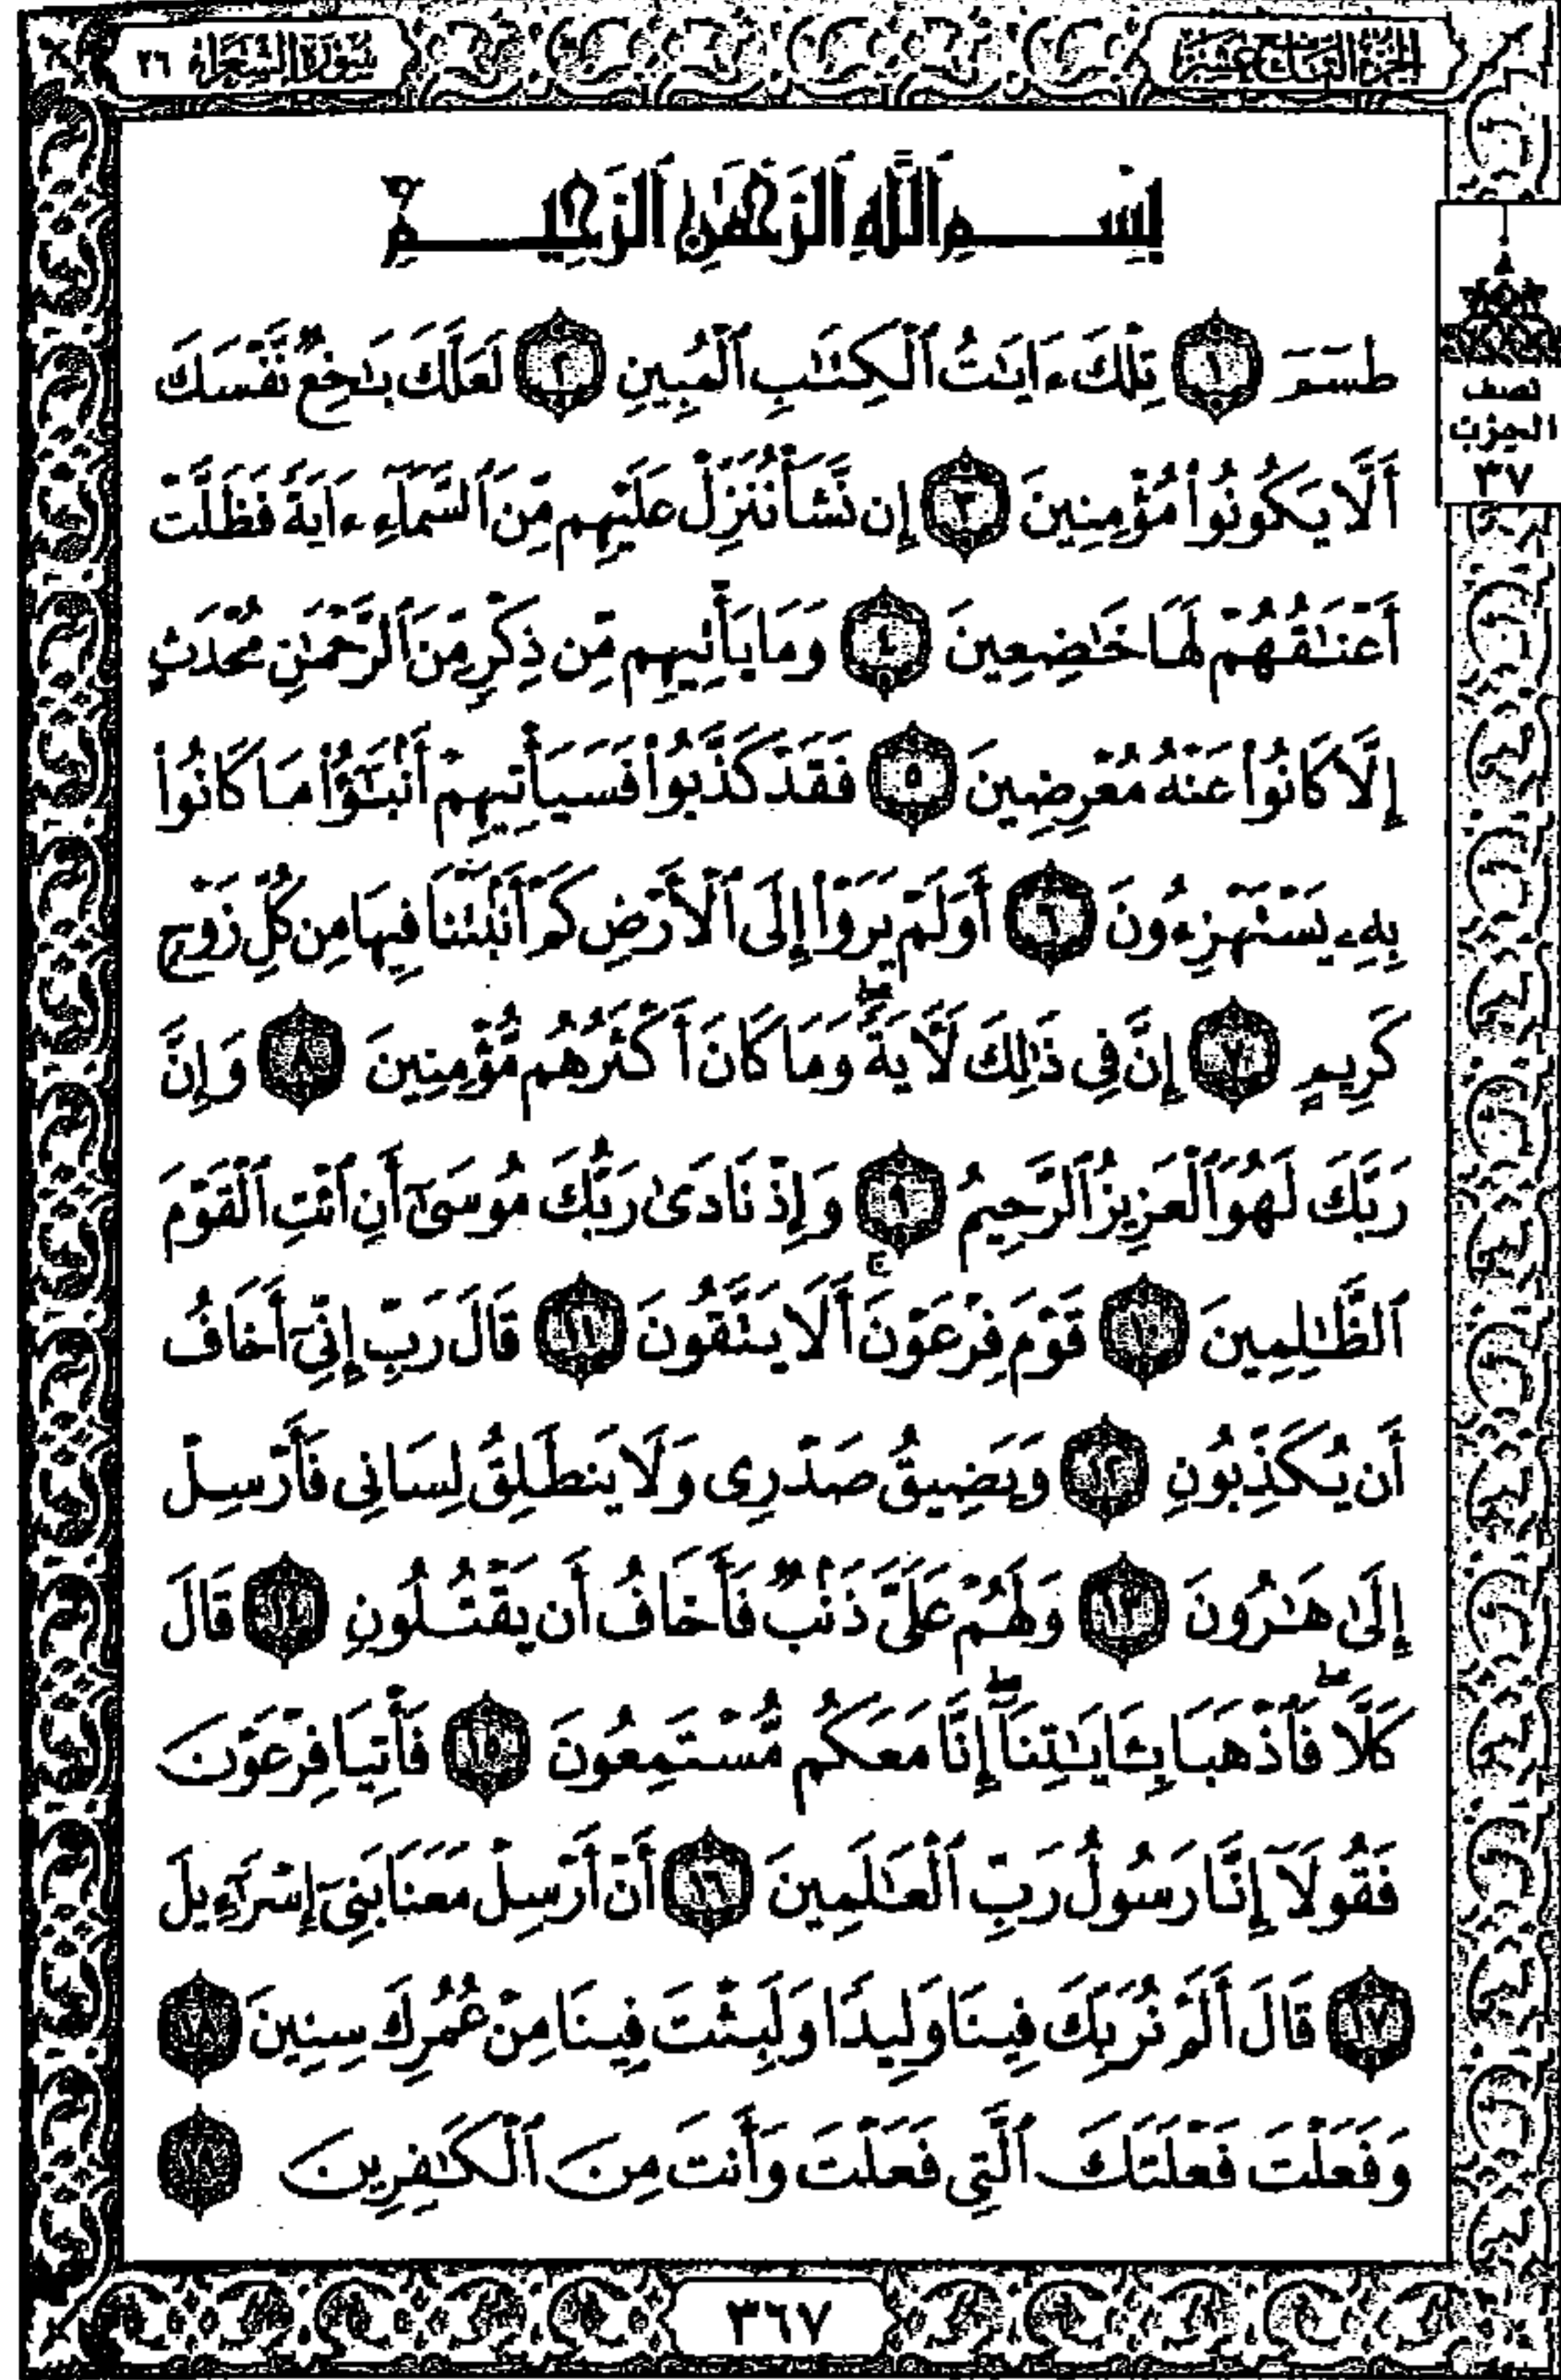 الجزء التاسع عشر
سورة الشعراء ٢٦
بِسْمِ ٱللَّهِ ٱلرَّحْمَٰنِ ٱلرَّحِيمِ
نصف
الحزب
٣٧
طسٓمٓ ١ تِلْكَ ءَايَٰتُ ٱلْكِتَٰبِ ٱلْمُبِينِ ٢ لَعَلَّكَ بَٰخِعٌ نَّفْسَكَ
أَلَّا يَكُونُوا۟ مُؤْمِنِينَ ٣ إِن نَّشَأْ نُنَزِّلْ عَلَيْهِم مِّنَ ٱلسَّمَآءِ ءَايَةً فَظَلَّتْ
أَعْنَٰقُهُمْ لَهَا خَٰضِعِينَ ٤ وَمَا يَأْتِيهِم مِّن ذِكْرٍ مِّنَ ٱلرَّحْمَٰنِ مُحْدَثٍ
إِلَّا كَانُوا۟ عَنْهُ مُعْرِضِينَ ٥ فَقَدْ كَذَّبُوا۟ فَسَيَأْتِيهِمْ أَنۢبَٰٓؤُا۟ مَا كَانُوا۟
بِهِۦ يَسْتَهْزِءُونَ ٦ أَوَلَمْ يَرَوْا۟ إِلَى ٱلْأَرْضِ كَمْ أَنۢبَتْنَا فِيهَا مِن كُلِّ زَوْجٍ
كَرِيمٍ ٧ إِنَّ فِى ذَٰلِكَ لَءَايَةً ۖ وَمَا كَانَ أَكْثَرُهُم مُّؤْمِنِينَ ٨ وَإِنَّ
رَبَّكَ لَهُوَ ٱلْعَزِيزُ ٱلرَّحِيمُ ٩ وَإِذْ نَادَىٰ رَبُّكَ مُوسَىٰٓ أَنِ ٱئْتِ ٱلْقَوْمَ
ٱلظَّٰلِمِينَ ١٠ قَوْمَ فِرْعَوْنَ ۚ أَلَا يَتَّقُونَ ١١ قَالَ رَبِّ إِنِّىٓ أَخَافُ
أَن يُكَذِّبُونِ ١٢ وَيَضِيقُ صَدْرِى وَلَا يَنطَلِقُ لِسَانِى فَأَرْسِلْ
إِلَىٰ هَٰرُونَ ١٣ وَلَهُمْ عَلَىَّ ذَنۢبٌ فَأَخَافُ أَن يَقْتُلُونِ ١٤ قَالَ
كَلَّا ۖ فَٱذْهَبَا بِـَٔايَٰتِنَآ ۖ إِنَّا مَعَكُم مُّسْتَمِعُونَ ١٥ فَأْتِيَا فِرْعَوْنَ
فَقُولَآ إِنَّا رَسُولُ رَبِّ ٱلْعَٰلَمِينَ ١٦ أَنْ أَرْسِلْ مَعَنَا بَنِىٓ إِسْرَٰٓءِيلَ
١٧ قَالَ أَلَمْ نُرَبِّكَ فِينَا وَلِيدًا وَلَبِثْتَ فِينَا مِنْ عُمُرِكَ سِنِينَ ١٨
وَفَعَلْتَ فَعْلَتَكَ ٱلَّتِى فَعَلْتَ وَأَنتَ مِنَ ٱلْكَٰفِرِينَ ١٩
٣٦٧